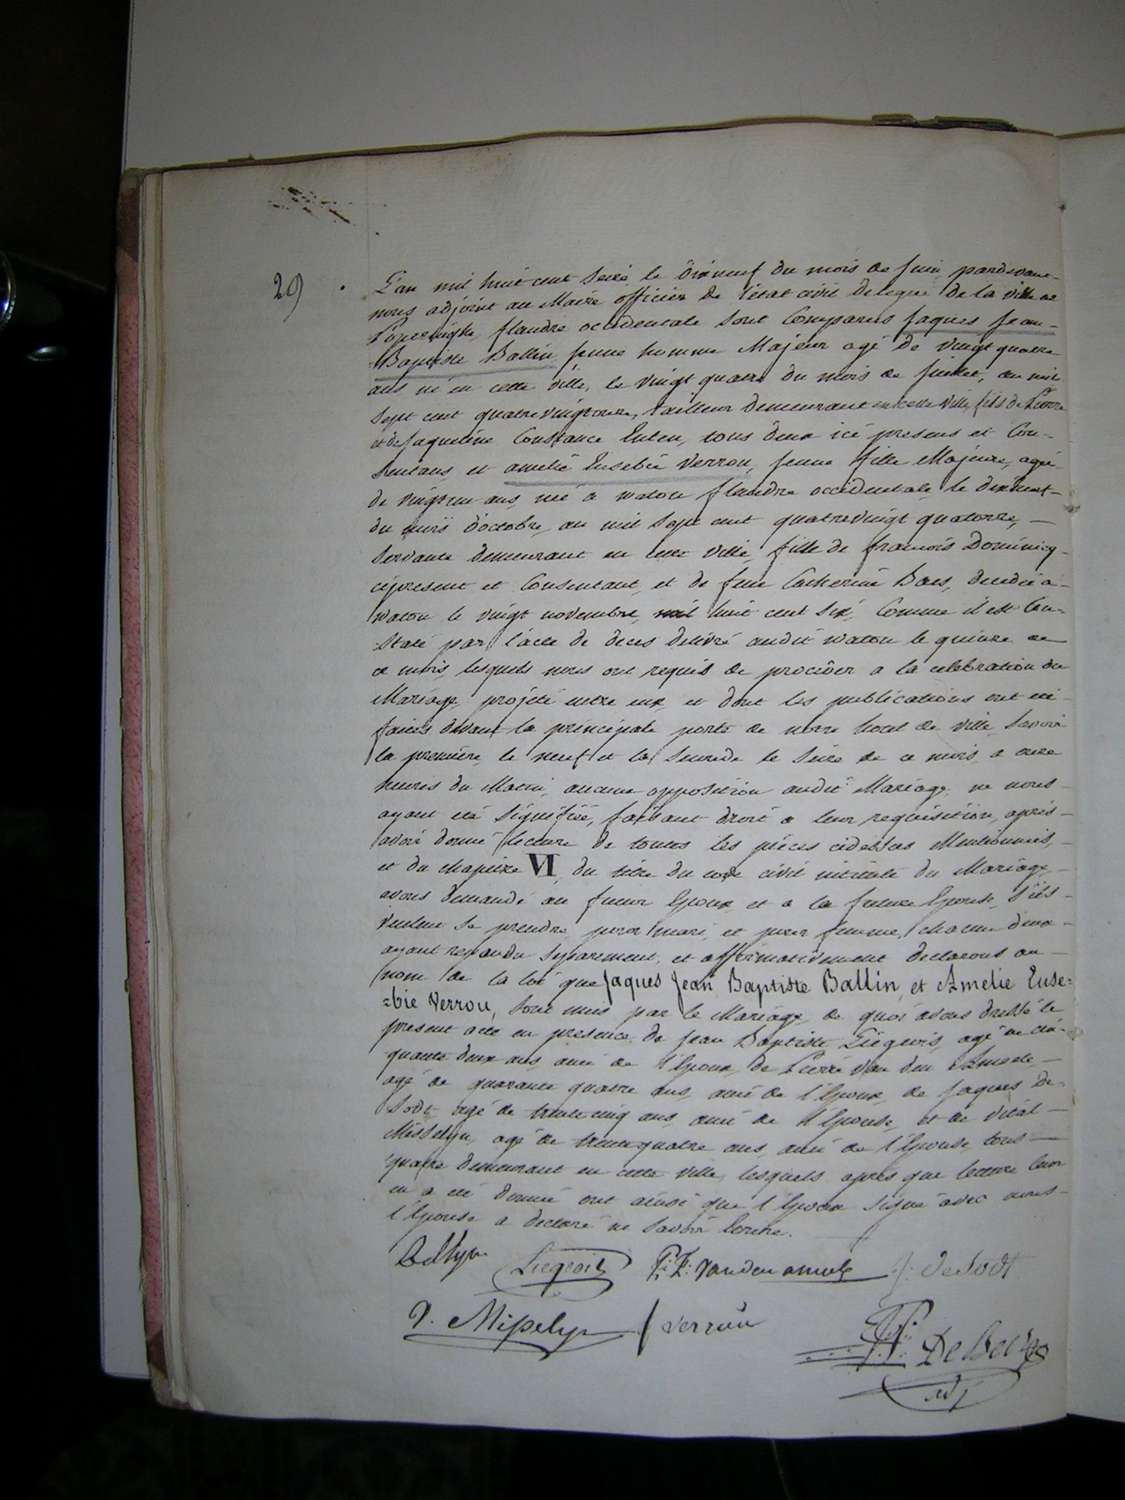 29
L'an mil huit cent Seize le Dixneuf du mois de Juin pardevant
nous adjoint au Maire officier de l'état civil délegué de la ville de
Poperinghe, flandre occidentale sont Comparus Jaques Jean-
Baptiste Ballin, jeune homme Majeur agé de vingt quatre
ans né en cette ville, le vingt quatre du mois de Juillet, an mil
Sept cent quatrevingtonze, tailleur demeurant en cette ville, fils de Pierre
et de Jaqueline Constance tous deux ici presens et Con-
Sentans et amelie Eusebie Verrou, jeune fille Majeure, agée
de vingt un ans, née a watou flandre occidentale le dixhuit
du mois d'octobre, an mil Sept cent quatrevingt quatorze, —
Servante demeurant en cette ville, fille de francois Dominicq
cipresent et Consentant, et de feue Catherine Baes, decedée a
watou le vingt novembre, mil huit cent Six, Comme il est Con-
staté par l'acte de deces delivré audit watou le quinze de
ce mois, lesquels nous ont requis de procéder a la celebration du
Mariage projété entre eux et dont les publications ont été
faites devant la principale porte de notre hotel de ville, Savoir
la première, le neuf et la Seconde le Seize de ce mois, a onze
heures du Matin, aucune opposition audit Mariage ne nous
ayant été Signifiée, faisant droit a leur requisition, après
avoir donné lecture de toutes les pièces cidessus Mentionnées,
et du chapitre VI, du titre du code civil intitulé du Mariage,
avons demandé au futur Epoux et a la future Epouse, S'ils
veulent Se prendre pour mari et pour femme, chacun d'eux
ayant repondu Séparement, et affirmativement declarons au
nom de la loi que Jaques Jean Baptiste Ballin, et Amelie Euse-
-bie Verrou, Sont unis par le Mariage, de quoi avons dressé le
present acte en presence de Jean Baptiste Liegeois, agé de cin-
quante deux ans, ami de l'Epoux, de Pierre Van den Ameele
agé de quarante quatre ans, ami de l'Epoux, de Jaques De-
Sodt agé de trente cinq ans, ami de l'Epouse, et de Vital
Misselyn, agé de trente quatre ans, ami de l'Epouse, tous
quatre demeurant en cette ville, lesquels après que lecture leur
en a été donné ont ainsi que l'Epoux Signé avec nous
l'Epouse a declaré ne Savoir Ecrire.
Liegeois P: F: vanden ameele J: desodt
V. Misselyn f verrou
De
adj